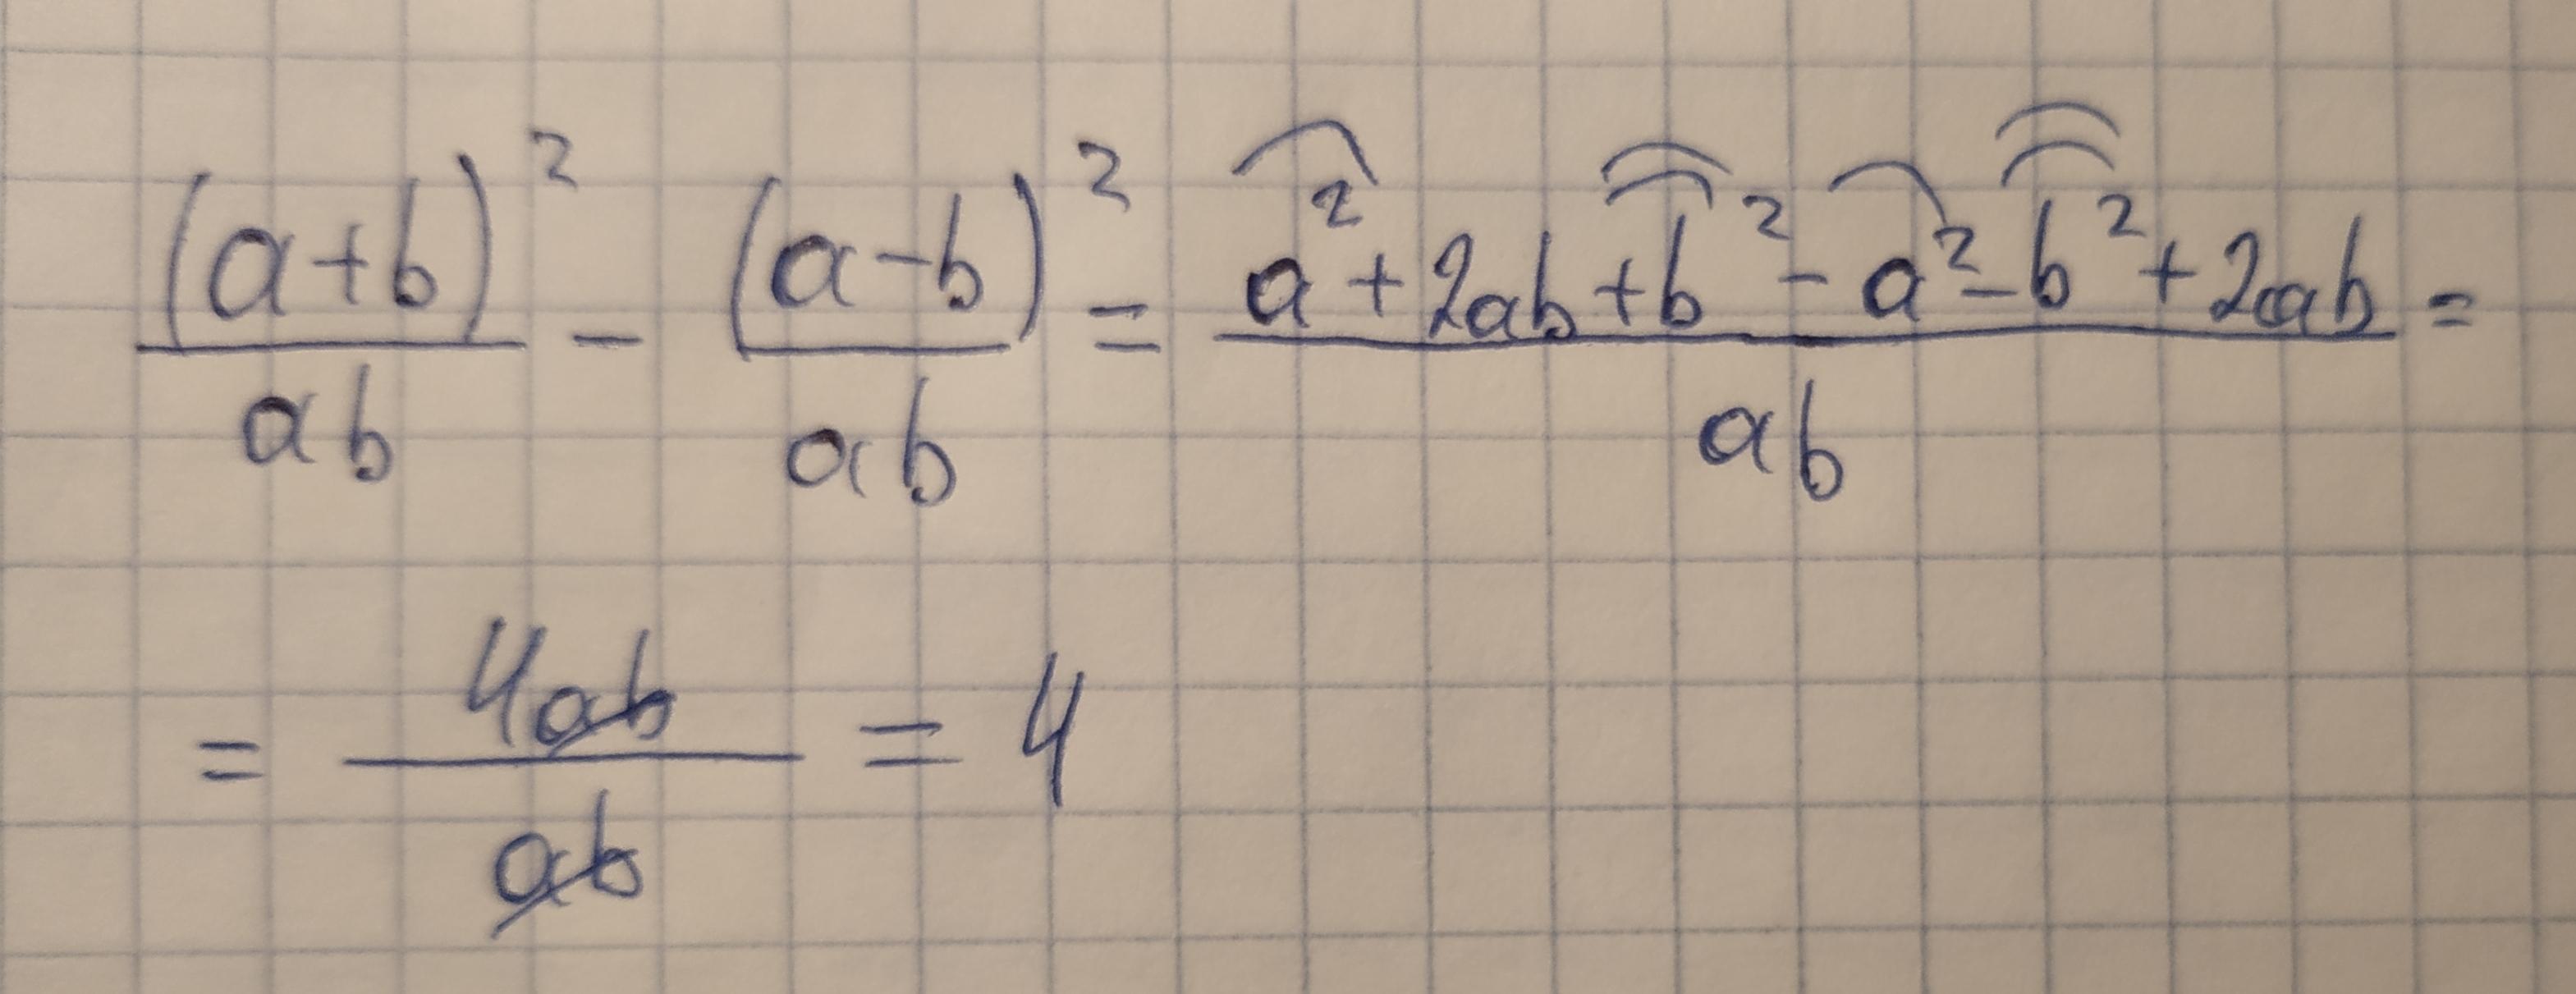 (a+b)²/ab - (a-b)²/ab = (a²+2ab+b²-a²-b²+2ab)/ab =
= 4ab/ab = 4